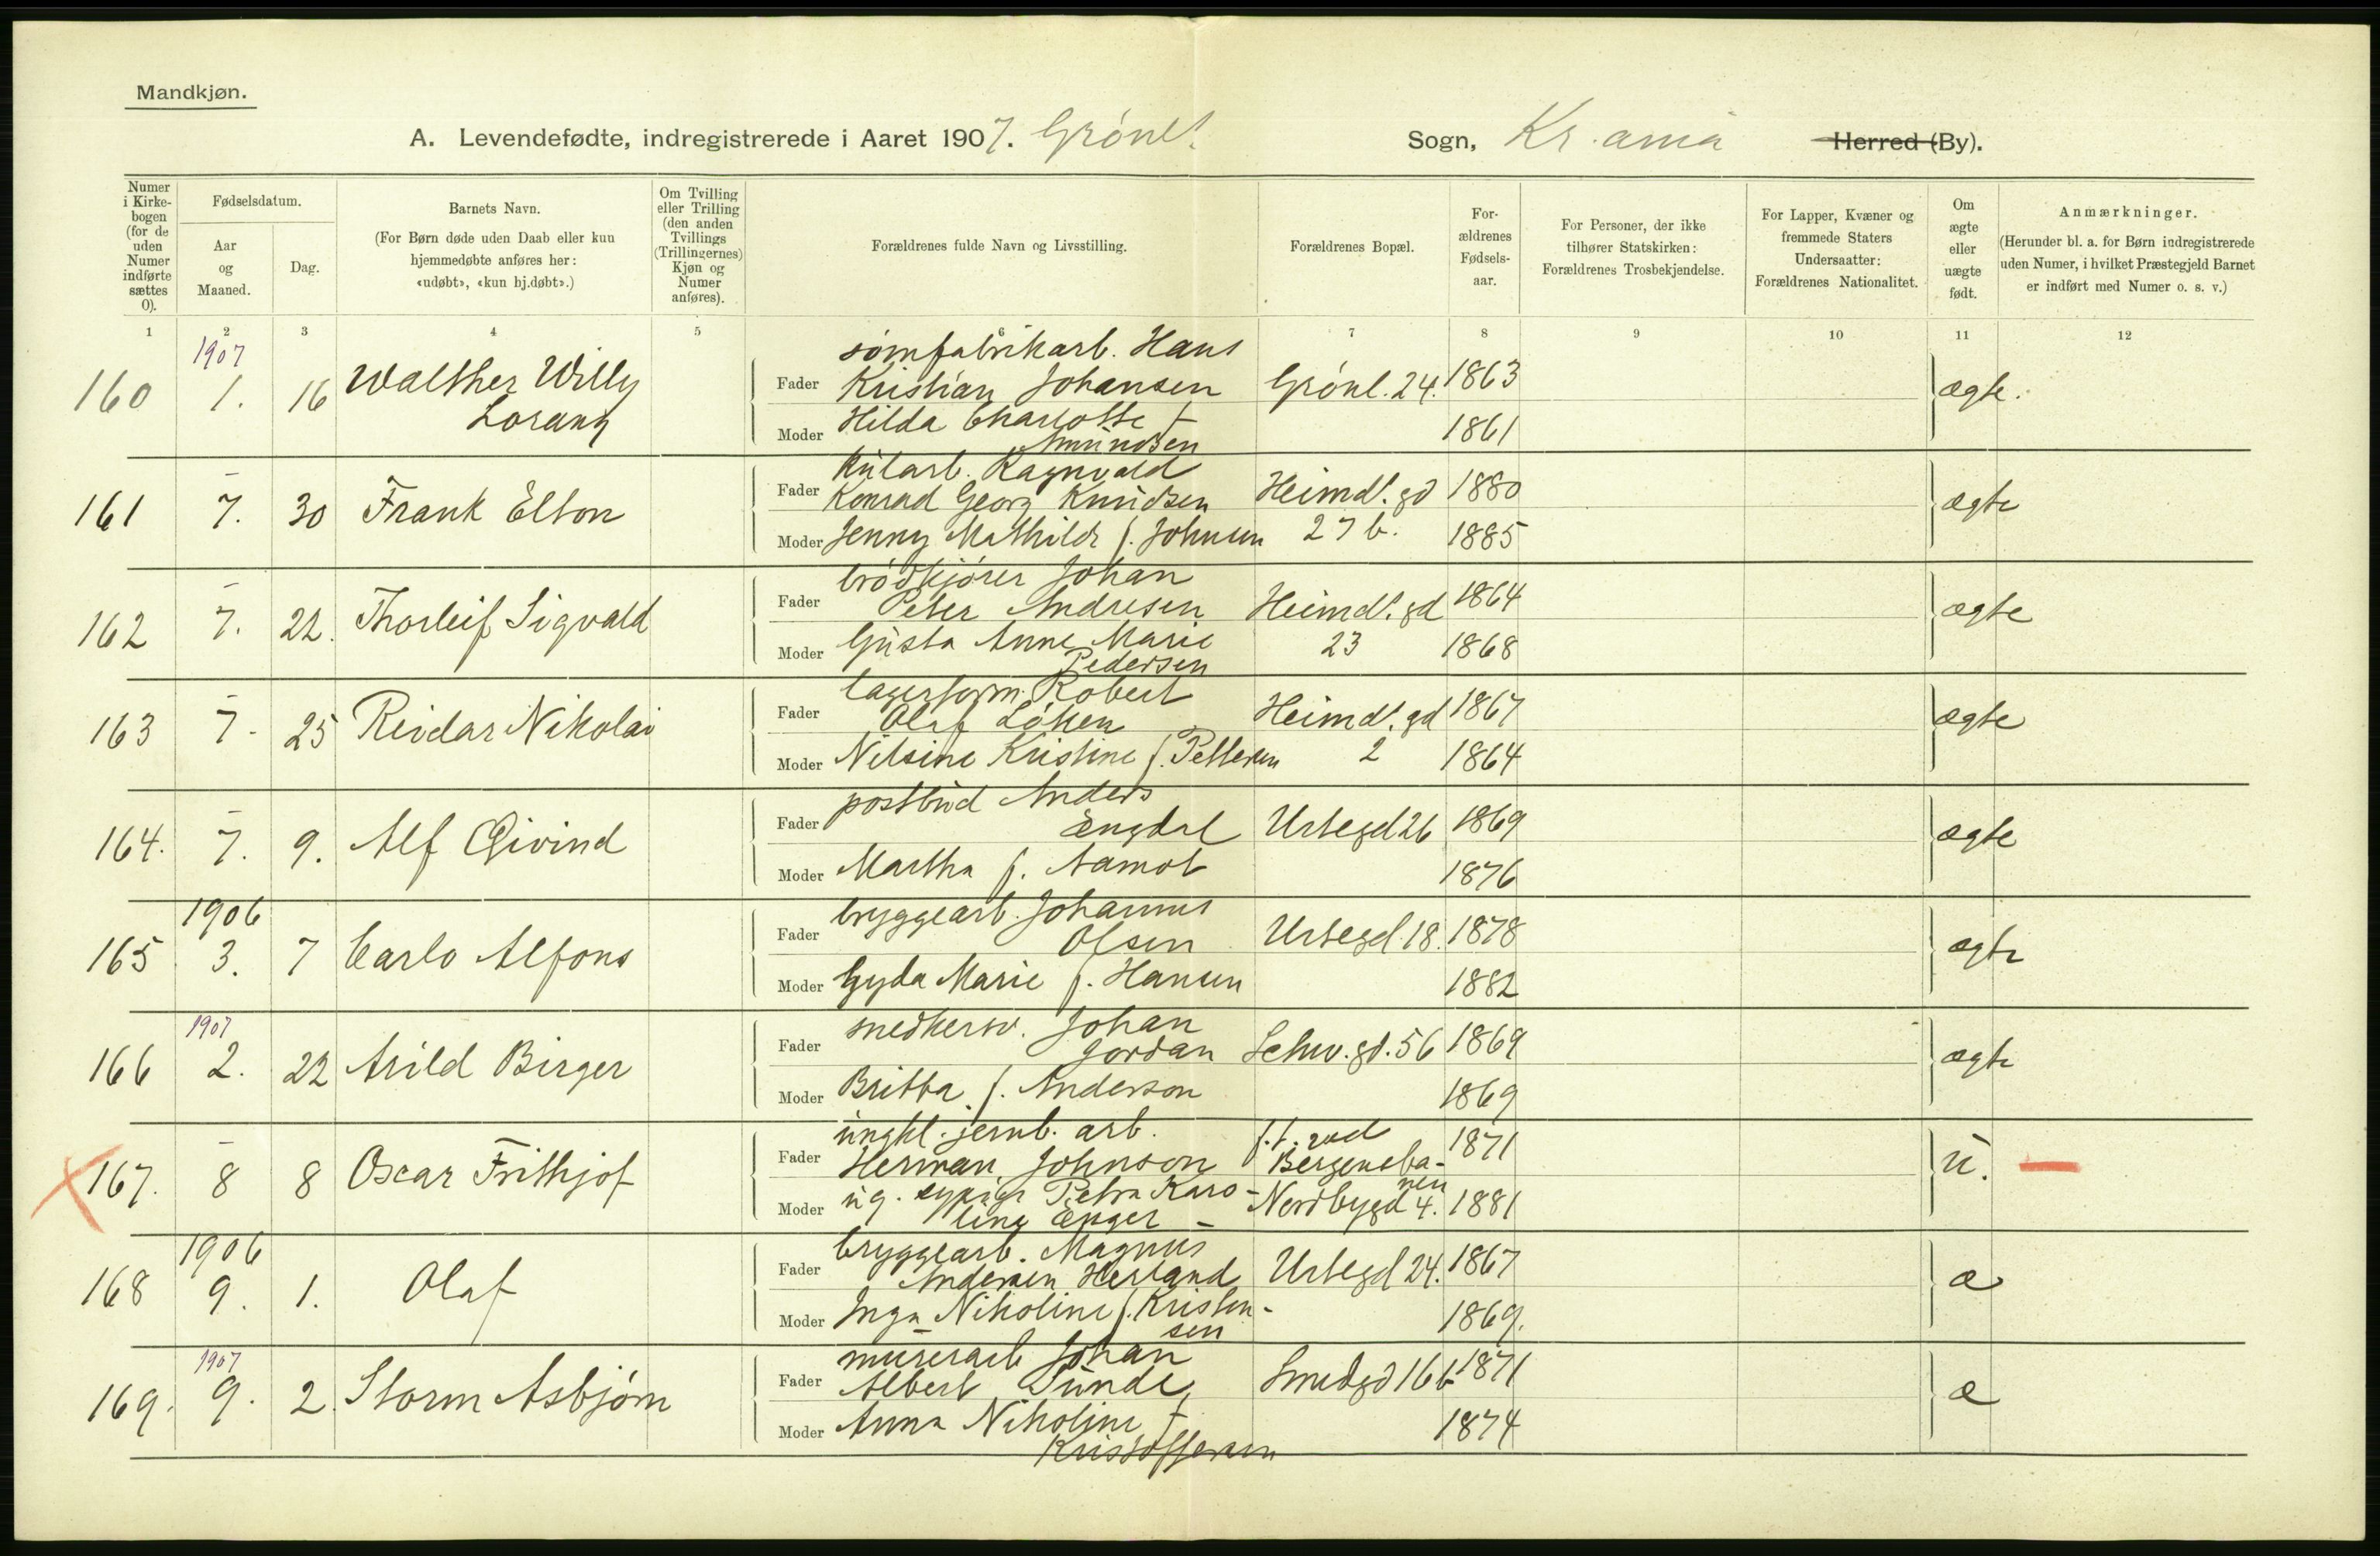 Mandkjøn.
A. Levendefødte, indregistrerede i Aaret 1907. Grönl. Sogn, Kr.ania Herred (By).
Numer i Kirkebogen (for de uden Numer indførte sættes 0).
Fødselsdatum.
Aar og Maaned.
Dag.
Barnets Navn.
(For Børn døde uden Daab eller kun hjemmedøbte anføres her: «udøbt», «kun hj.døbt».)
Om Tvilling eller Trilling (den anden Tvillings (Trillingernes) Kjøn og Numer anføres).
Forældrenes fulde Navn og Livsstilling.
Forældrenes Bopæl.
Forældrenes Fødselsaar.
For Personer, der ikke tilhører Statskirken: Forældrenes Trosbekjendelse.
For Lapper, Kvæner og fremmede Staters Undersaatter: Forældrenes Nationalitet.
Om ægte eller uægte født.
Anmærkninger.
(Herunder bl. a. for Børn indregistrerede uden Numer, i hvilket Præstegjeld Barnet er indført med Numer o. s. v.)
1 2 3 4 5 6 7 8 9 10 11 12
160 1907 1. 16 Walther Willy Lorang
Fader sömfabrikarb. Hans Kristian Johansen Grönl. 24. 1863 ægte.
Moder Hilda Charlotte f. Amundsen 1861
161 – 7. 30 Frank Elton
Fader kularb. Ragnvald Konrad Georg Knudsen Heimdl. gd 1880 ægte
Moder Jenny Mathilde f. Johnsen 27 b. 1885
162 – 7. 22. Thorleif Sigvald
Fader brödkjörer Johan Peter Andresen Heimdl. gd 1864 ægte
Moder Gusta Anne Marie Pedersen 23 1868
163 – 7. 25 Reidar Nikolai
Fader lagerform. Robert Olaf Löken Heimdl. gd 1867 ægte
Moder Nilsine Kristine f. Pettersen 2 1864
164. – 7. 9. Alf Eivind
Fader postbud Anders Engdal Urtegd 26 1869 ægte
Moder Martha f. Aamot 1876
165 1906 3. 7 Carlo Alfons
Fader bryggearb. Johannes Olsen Urtegd. 18. 1878 ægte
Moder Gyda Marie f. Hansen 1882
166 1907 2. 22 Arild Birger
Fader snedkersv. Johan Jordan Schw. gd. 56 1869 ægte
Moder Britta f. Anderson 1869
167. – 8 8 Oscar Frithjof
Fader ungkl. jernb. arb. Herman Johnson f.t. ved Bergensbanen 1871 u. –
Moder ug. sypige Petra Karoline Enger – Nordbygd 4. 1881
168 1906 9. 1. Olaf
Fader bryggearb. Magnus Andersen Herland Urtegd 24. 1867 æ
Moder Inga Nikoline f. Kristensen 1869.
169. 1907 9. 2. Storm Asbjörn
Fader murerarb Johan Albert Sunde Smedgd 16 b 1871 æ
Moder Anna Nikoline f. Kristoffersen 1874